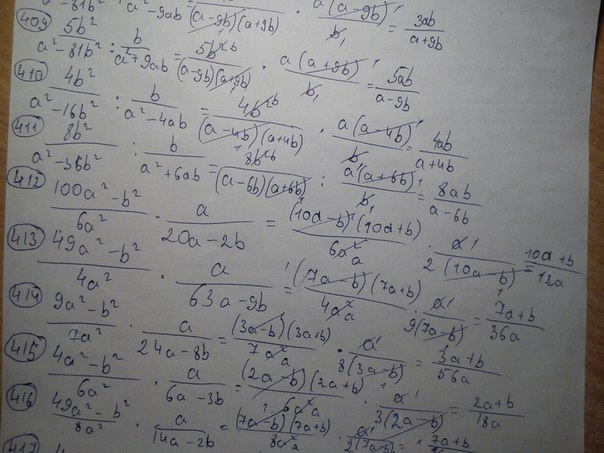 a²-81b² a²-9ab (a-9b)(a+9b) · a(a-9b)/b = 3ab/(a+9b)
409 5b²/(a²-81b²) : b/(a²+9ab) = 5b²/((a-9b)(a+9b)) · a(a+9b)/b = 5ab/(a-9b)
410 4b²/(a²-16b²) : b/(a²-4ab) = 4b²/((a-4b)(a+4b)) · a(a-4b)/b = 4ab/(a+4b)
411 8b²/(a²-36b²) : b/(a²+6ab) = 8b²/((a-6b)(a+6b)) : a(a+6b)/b = 8ab/(a-6b)
412 (100a²-b²)/6a² · a/(20a-2b) = (10a-b)(10a+b)/6a² · a/2(10a-b) = (10a+b)/12a
413 (49a²-b²)/4a² · a/(63a-9b) = (7a-b)(7a+b)/4a² · a/9(7a-b) = (7a+b)/36a
414 (9a²-b²)/7a² · a/(24a-8b) = (3a-b)(3a+b)/7a² · a/8(3a-b) = (3a+b)/56a
415 (4a²-b²)/6a² · a/(6a-3b) = (2a-b)(2a+b)/6a² · a/3(2a-b) = (2a+b)/18a
416 (49a²-b²)/8a² · a/(14a-2b) = (7a-b)(7a+b)/8a² · a/2(7a-b) = 7a+b
417